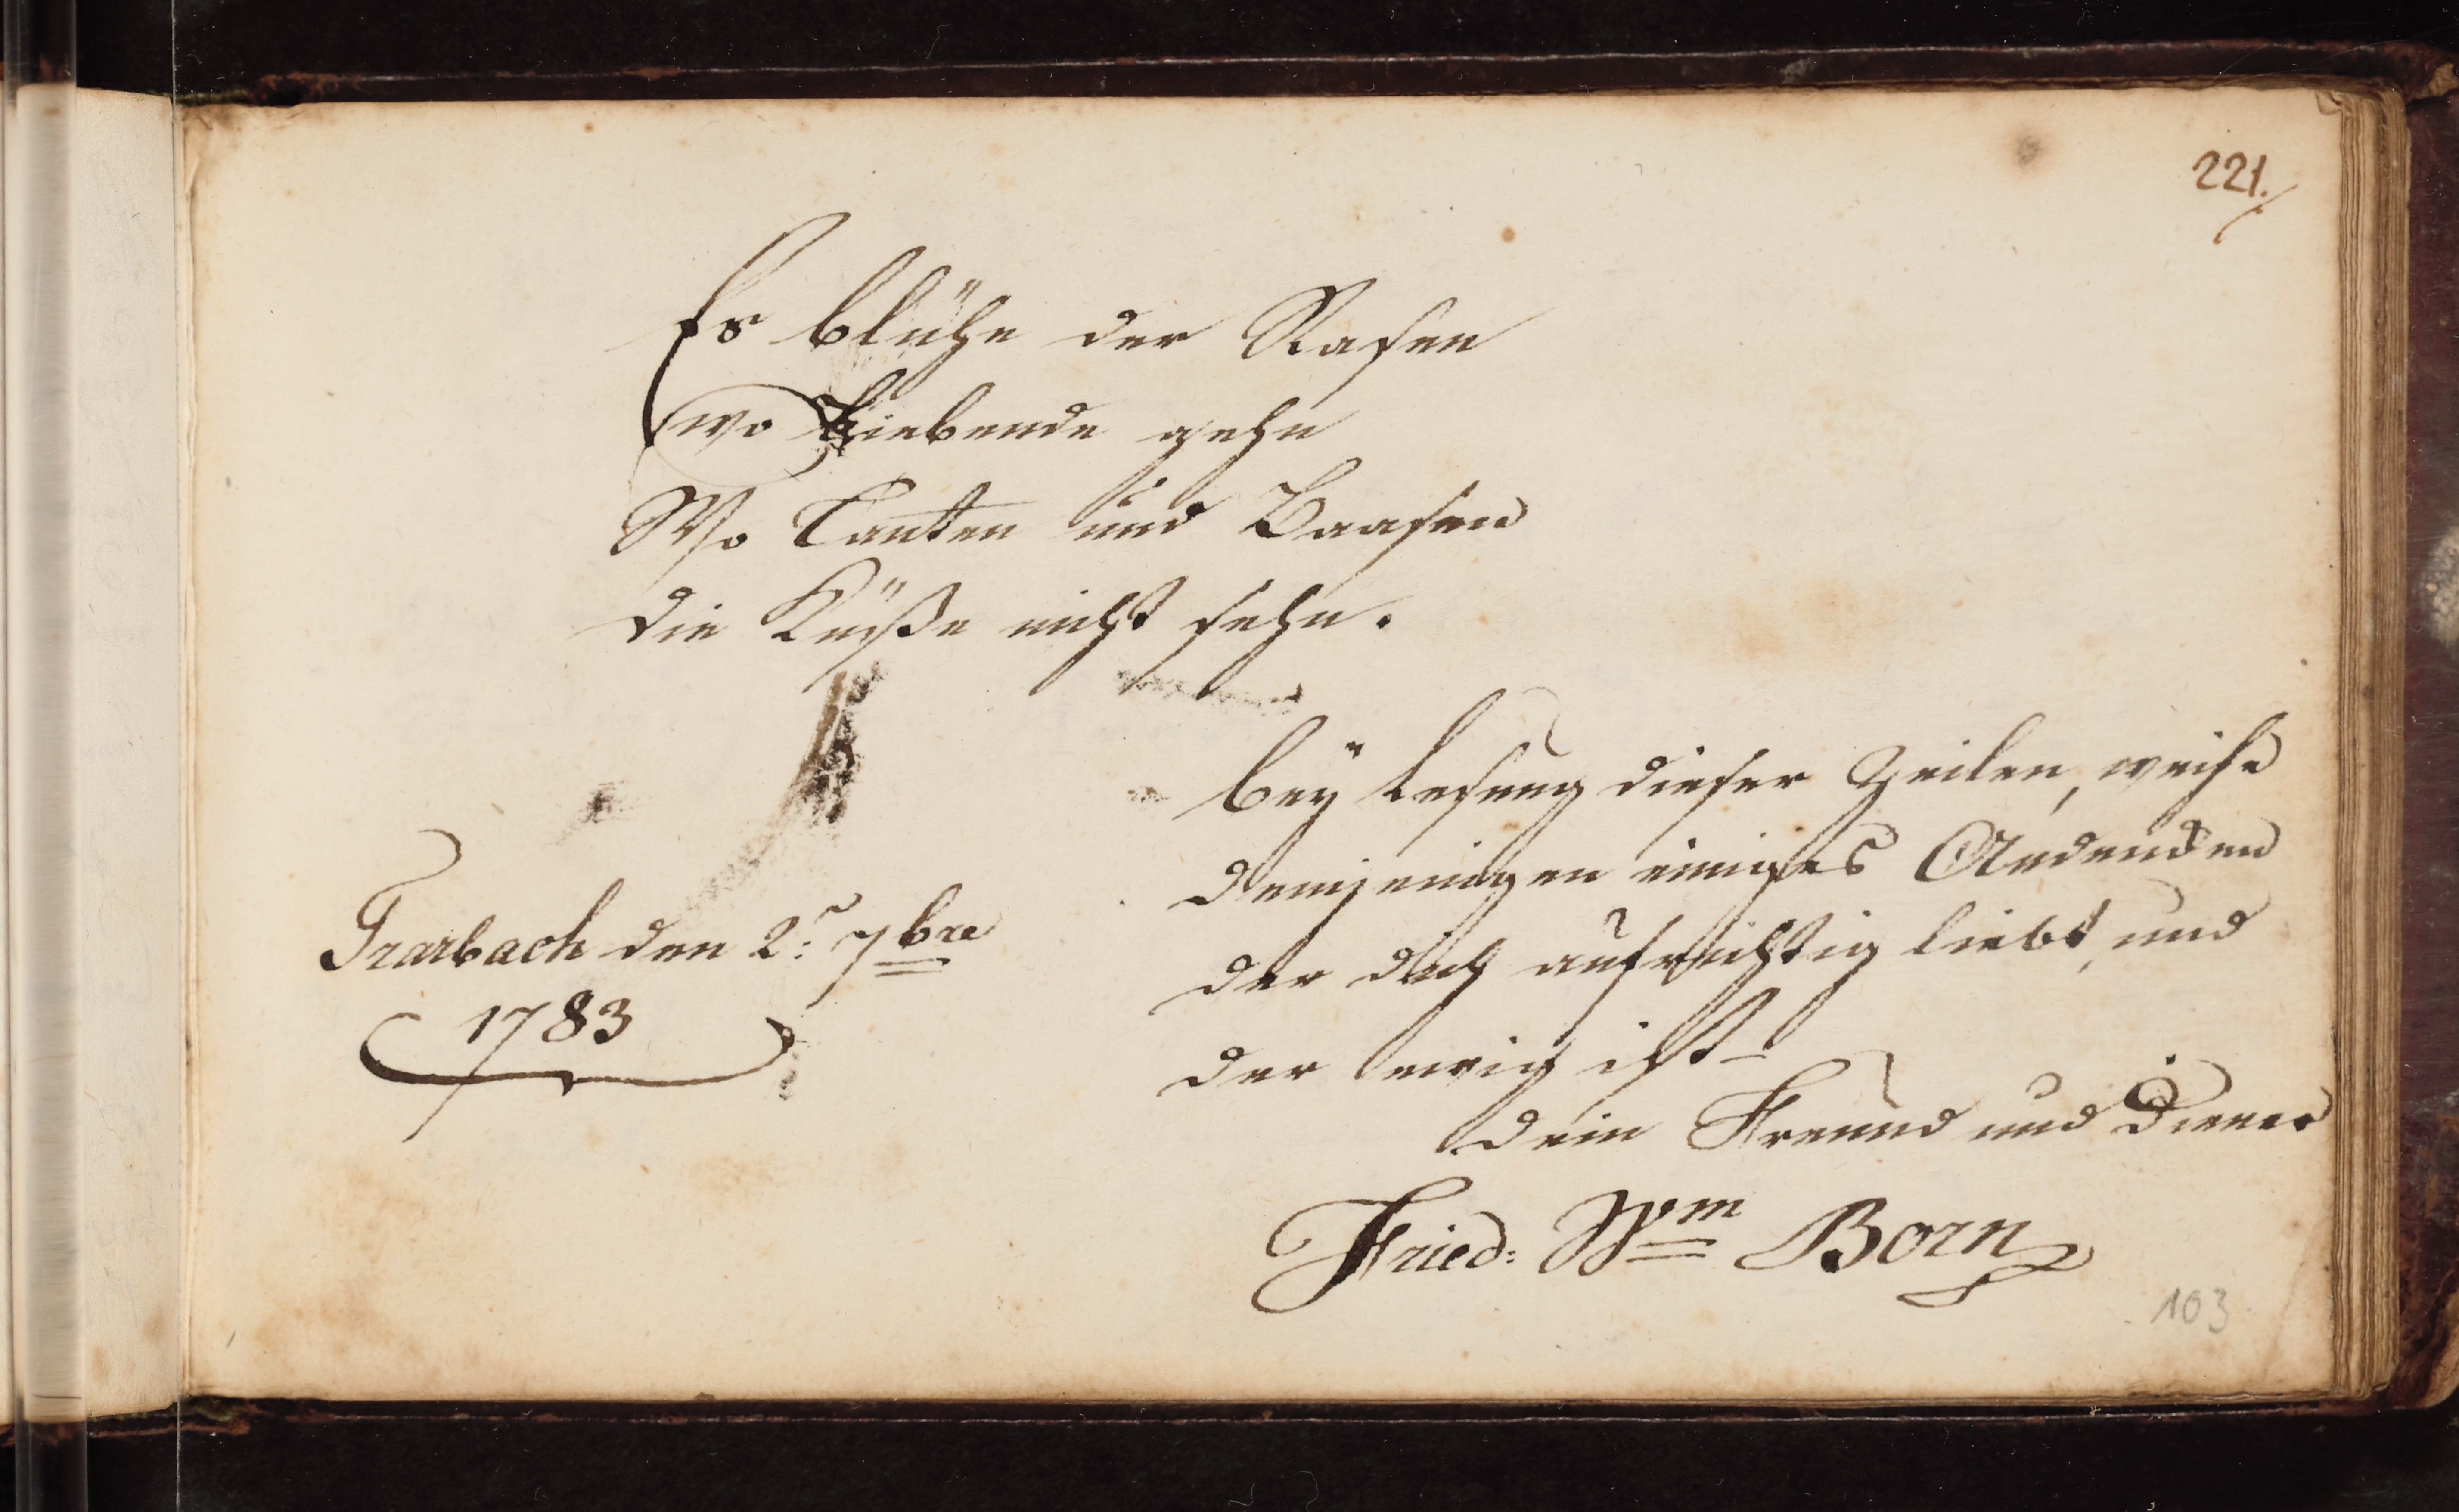 221.
Es blühe der Rasen
wo Liebende gehn
Wo Tanten und Baasen
die Küße nicht sehn.
bey Lesung dieser Zeilen, weihe
demjenigen einiges Andencken
der dich aufrichtig liebt, und
der ewig ist
dein Freund und Diener
Fried: Wm Born
Trarbach den 2: 7bre
1783
103